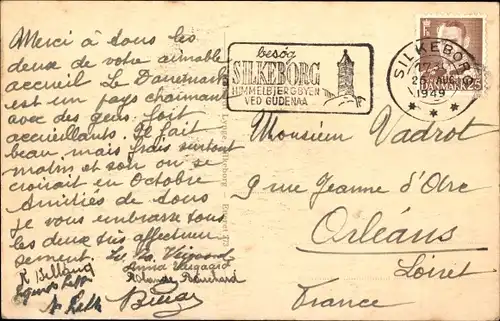 Merci à tous les
deux de votre aimable
accueil Le Danemark
est un pays charmant
avec des gens fort
accueillants. Il fait
beau mais frais surtout
matin et soir on se
croirait en Octobre
Amitiés de tous
je vous embrasse tous
les deux très affectueu
sement.
Anna
besøg
SILKEBORG
HIMMELBJERGBYEN
VED GUDENAA
SILKEBORG
AUG.
1949
DANMARK 25
Monsieur Vadrot
9 rue Jeanne d'Arc
Orléans
Loiret
France